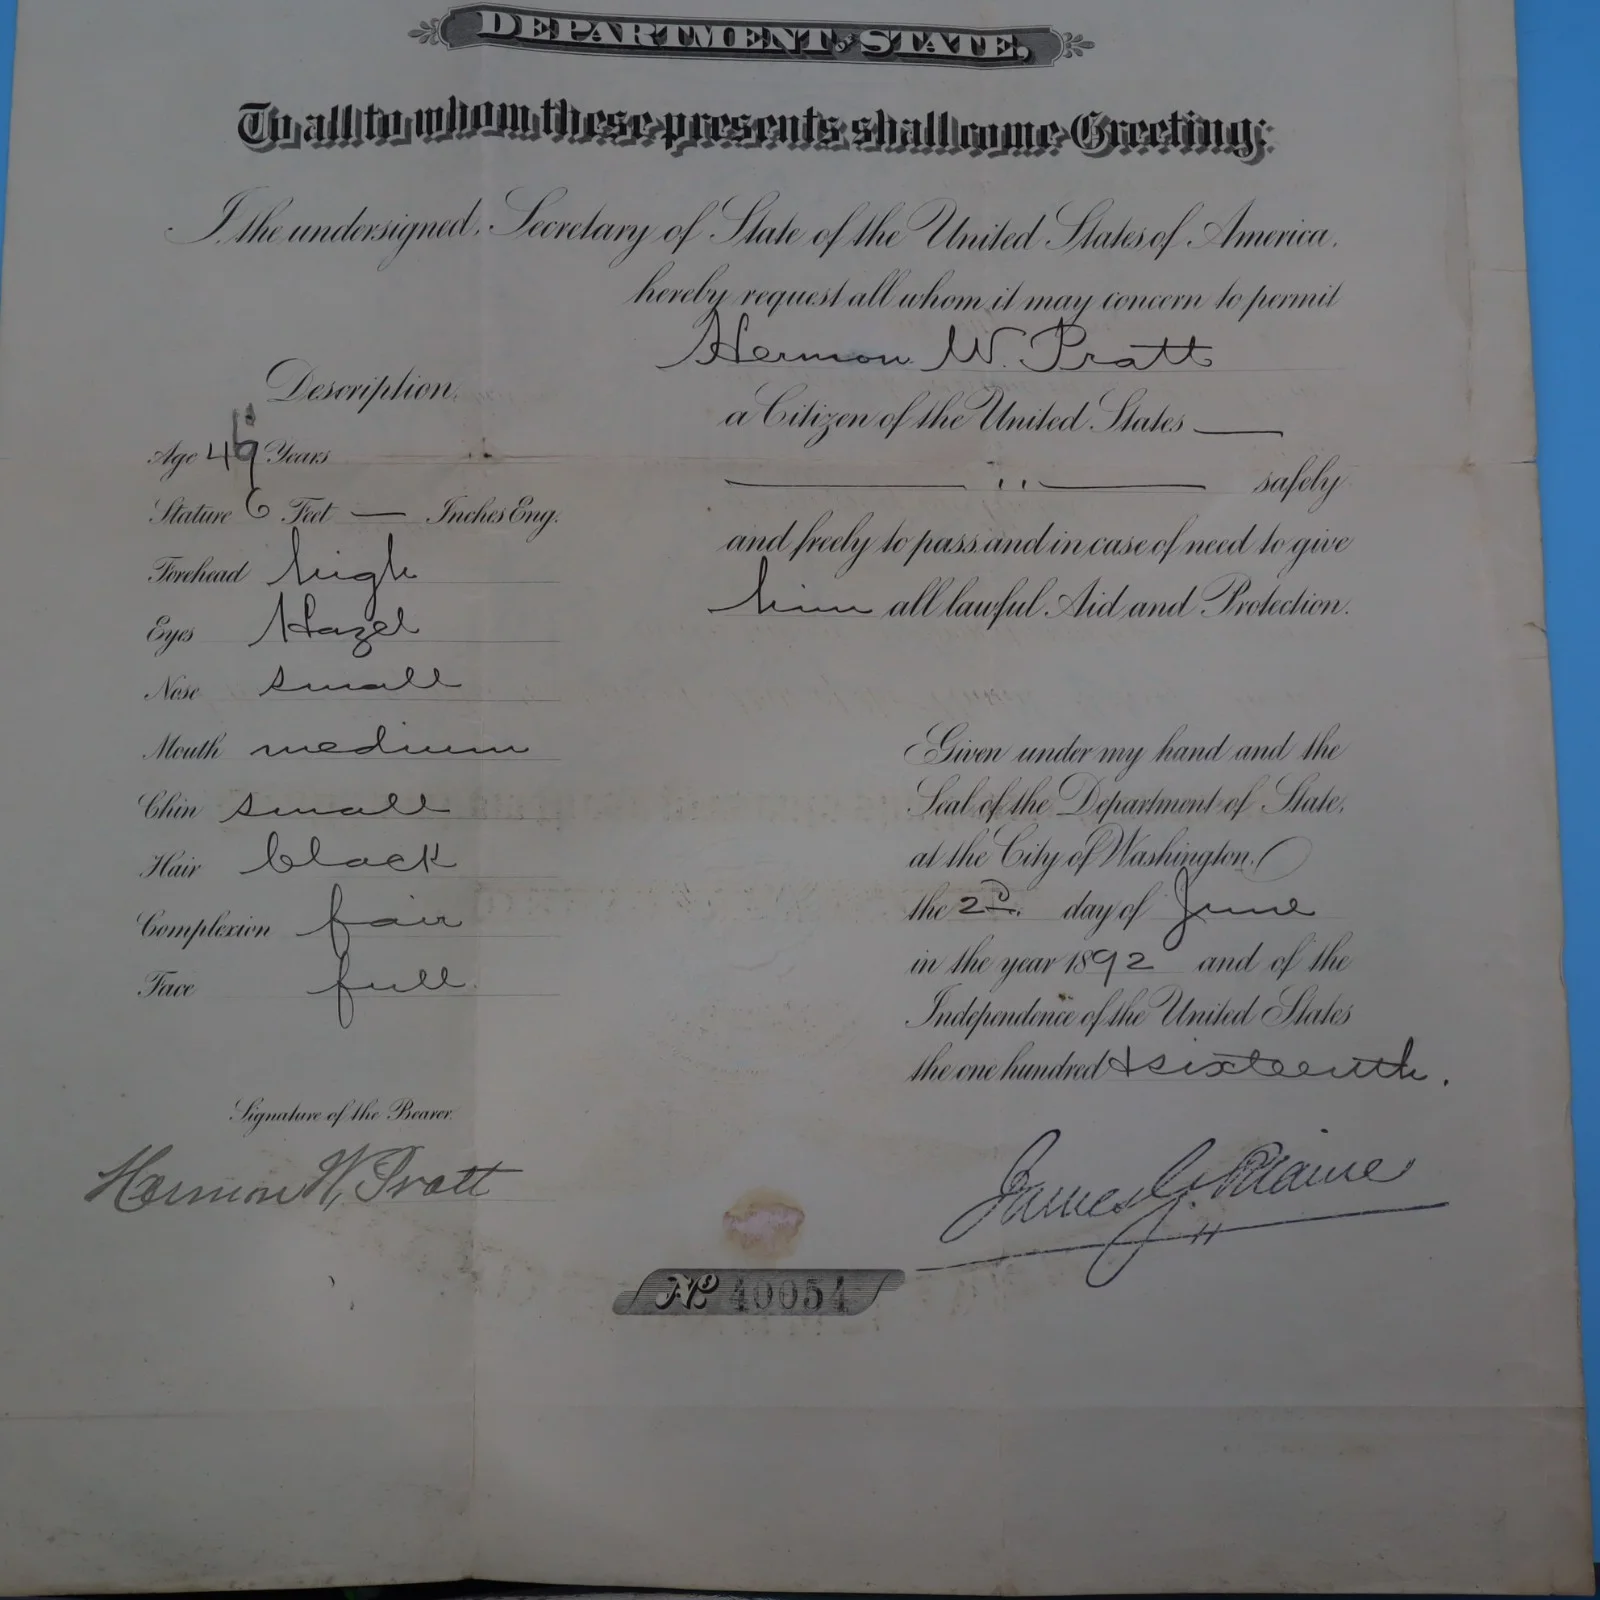 DEPARTMENT OF STATE,
To all to whom these presents shall come Greeting:
I, the undersigned, Secretary of State of the United States of America,
hereby request all whom it may concern to permit
Hermon W. Pratt
a Citizen of the United States
safely
and freely to pass and in case of need to give
him all lawful Aid and Protection.
Description,
Age Years
Stature 6 Feet — Inches Eng.
Forehead high
Eyes Hazel
Nose small
Mouth medium
Chin small
Hair black
Complexion fair
Face full.
Signature of the Bearer.
Hermon W. Pratt
Given under my hand and the
Seal of the Department of State,
at the City of Washington,
the 2d. day of June
in the year 1892 and of the
Independence of the United States
the one hundred & sixteenth.
James G. Blaine
No 40054